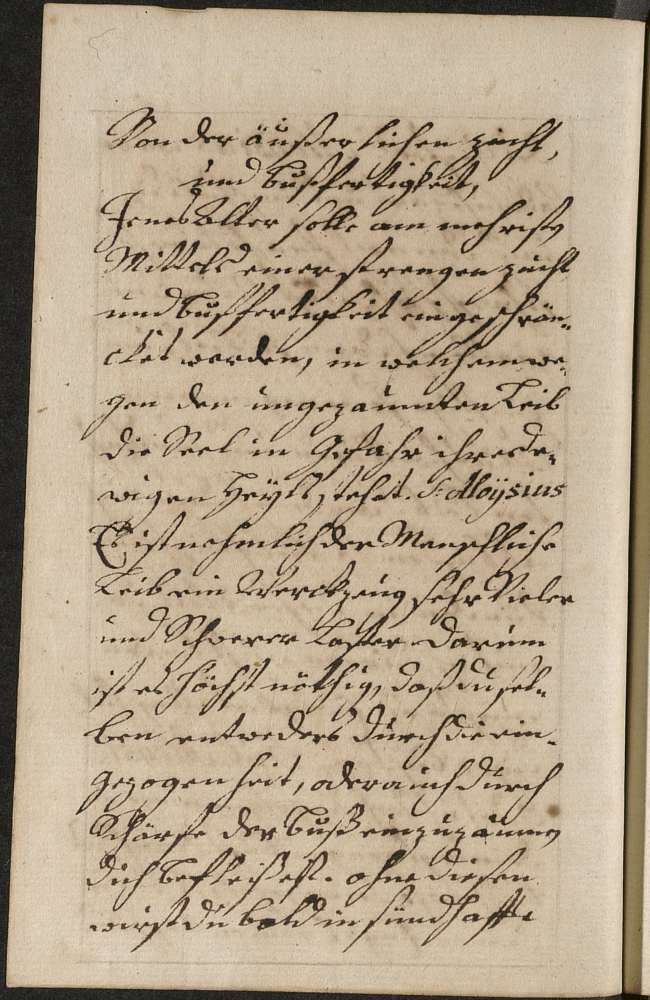 Von der äußerlichen zucht,
und bußfertigkeit,
Jenes Alter solle am mehristen
Mittels einer strengen zucht
und bußfertigkeit eingeschrän-
cket werden, in welchem we-
gen den ungezaumten Leib
die Seel in Gefahr ihres e-
wigen Heyls stehet. S: Aloysius
Es ist nehmlich der Menschliche
Leib ein Werckzeug sehr Vieler
und Schwerer Laster darum
ist es höchst nöthig, daß du sel-
ben entweders durch die ein-
gezogenheit, oder auch durch
Schärfe der buß einzuzäumen
dich befleißest. ohne diesen
wirst du bald in sündhaffte